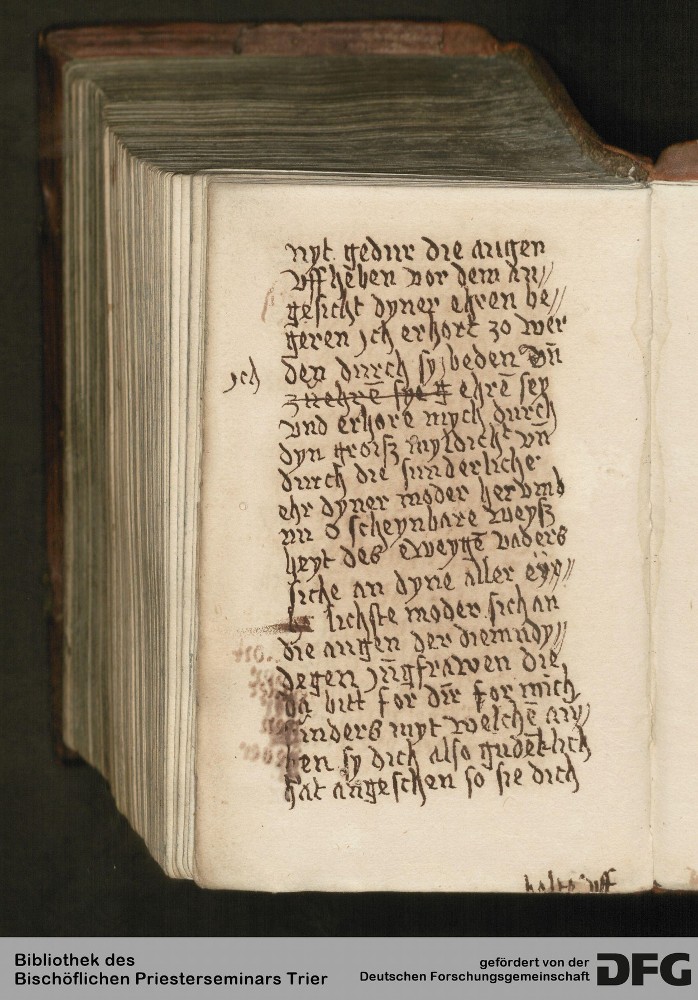 nyt gedur die augen
vffheben vor dem an//
gesicht dyner ehren be//
geren ych erhort zo wer
den durch sy beden vn̄
ych
znehrē sye g ehrē sey
vnd erhore mych durch
dyn groiſz myldicht vn̄
durch die sunderliche
ehr dyner moder her vmb
nu o scheynbare weyſz
heyt des eweygē vaders
siche an dyne aller eyn//
lichste moder sich an
die augen der diemudy//
degen jūgfrawen die
da bitt for dir for mich
inders myt welchē au
en sy dich also gudētlich
hat angeschen so sie dich
vff
Bibliothek des
Bischöflichen Priesterseminars Trier
gefördert von der
Deutschen Forschungsgemeinschaft
DFG